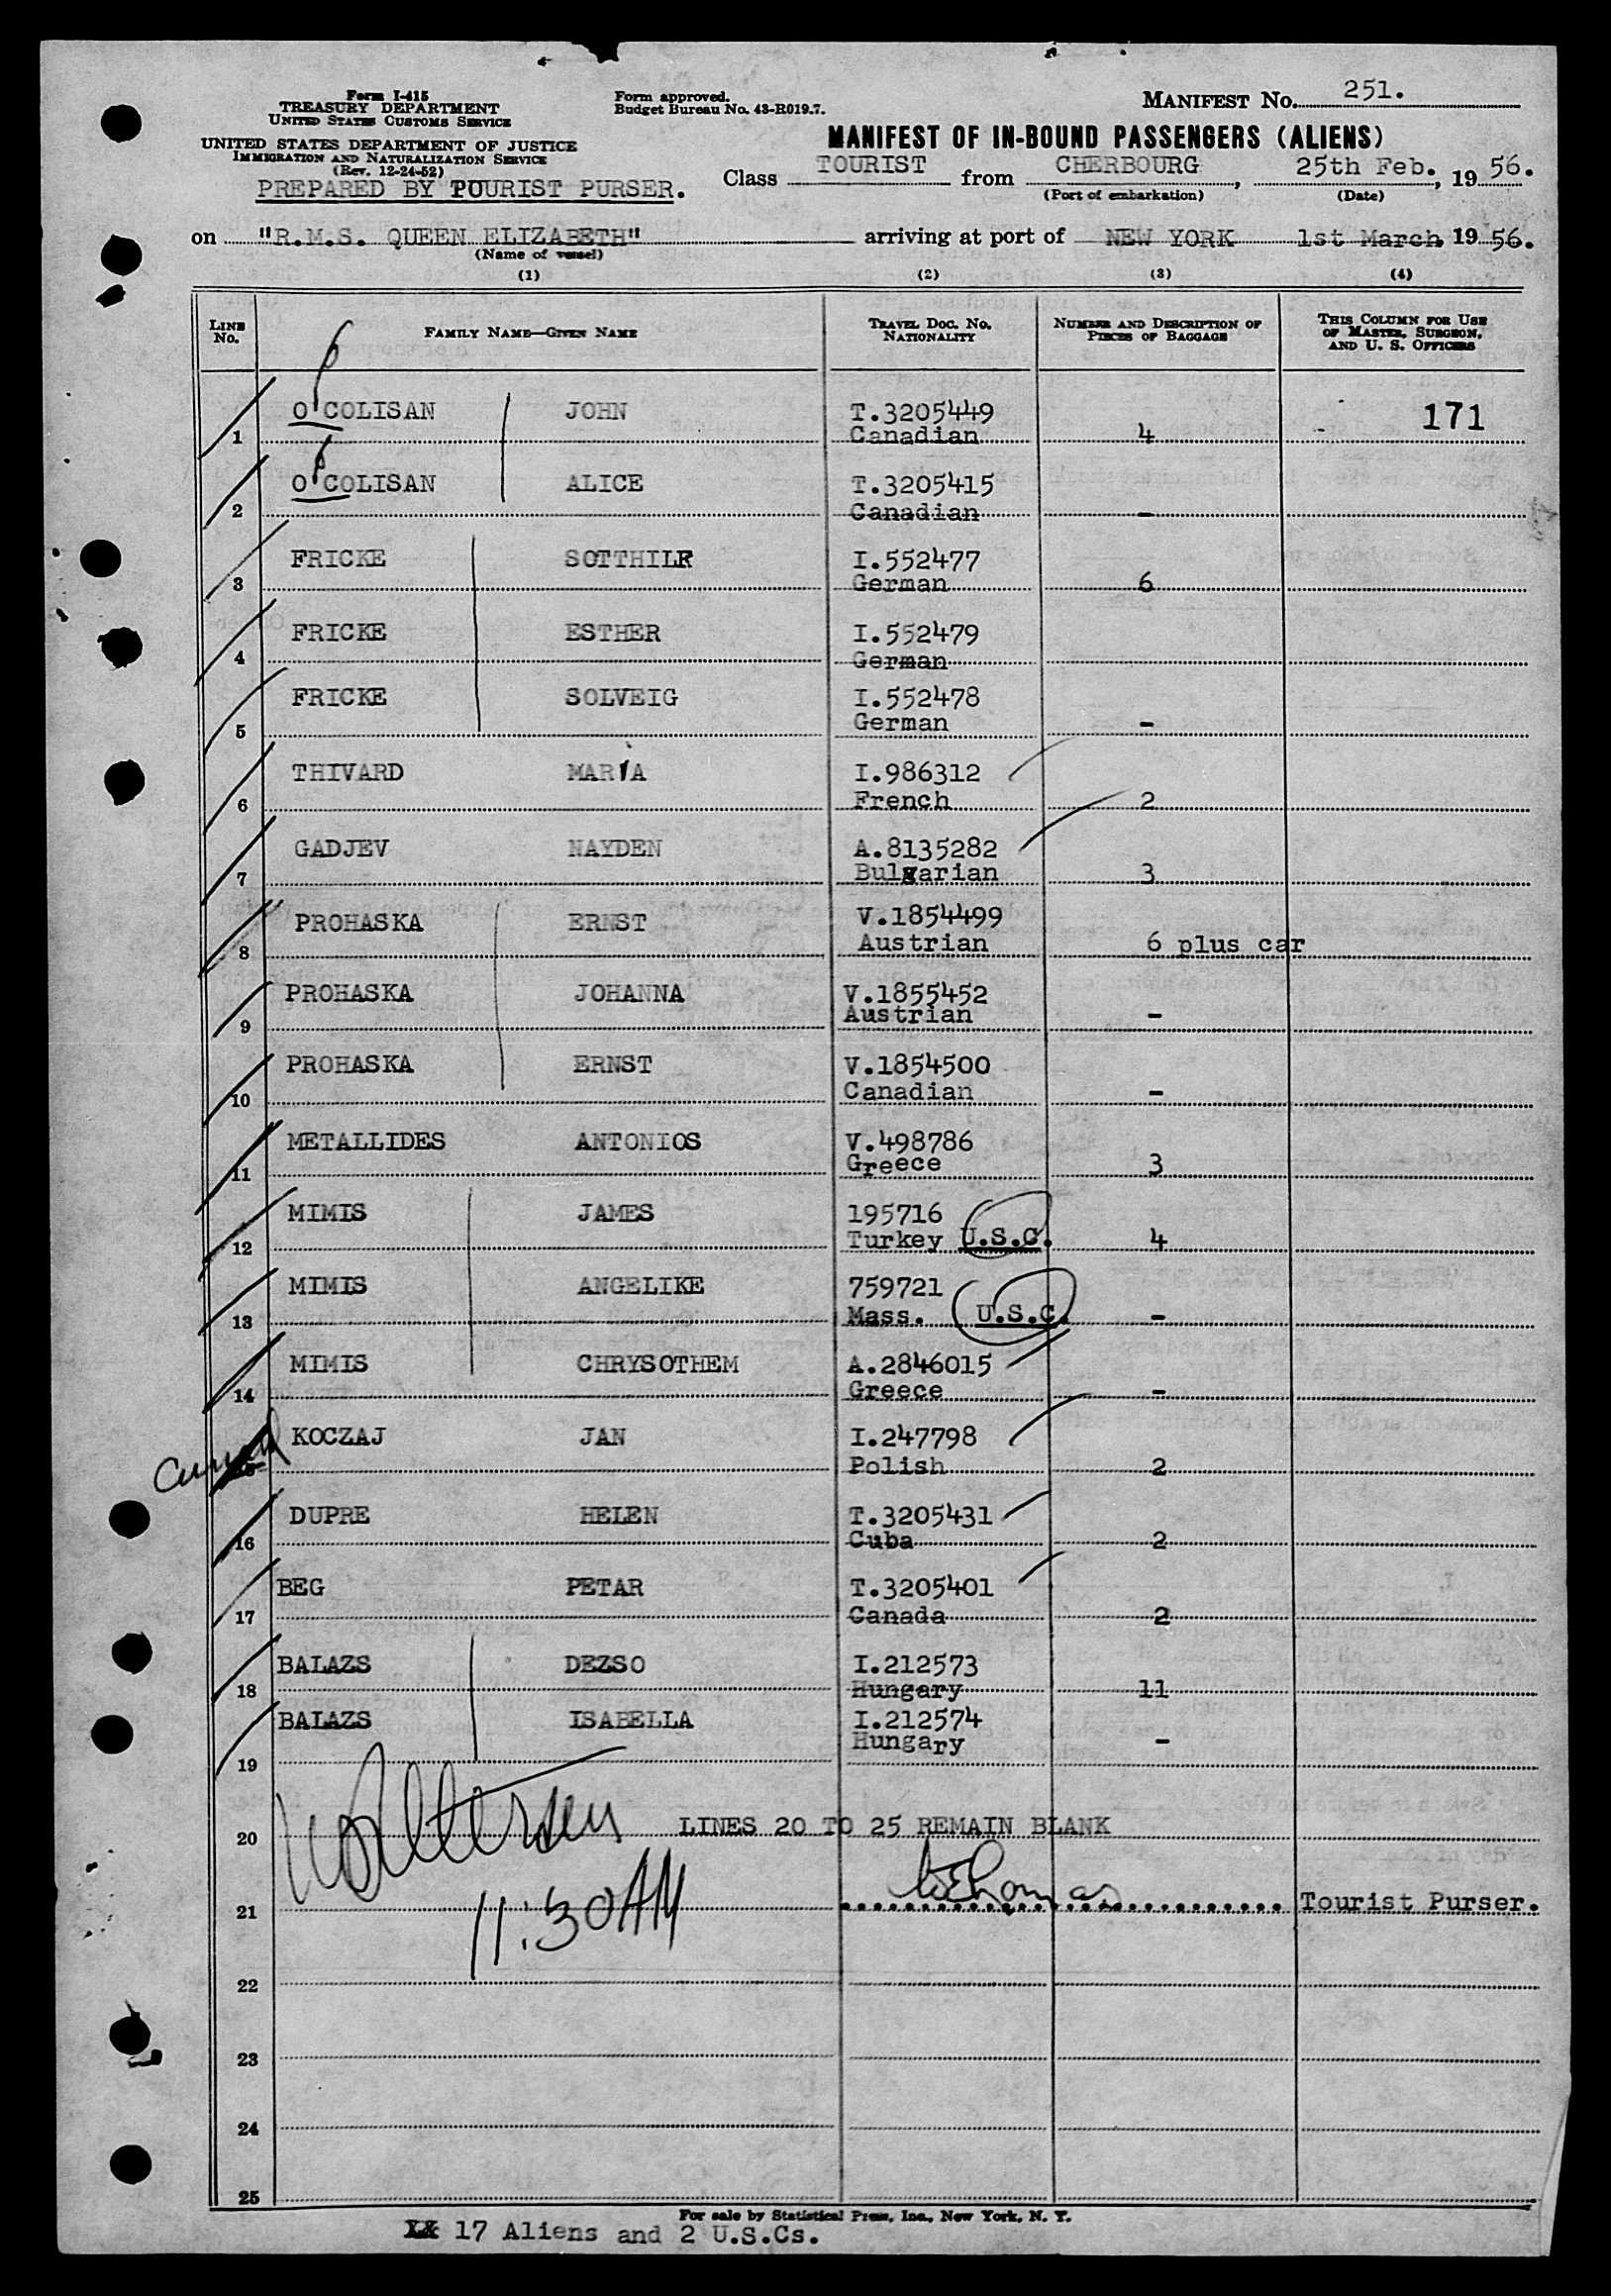 Form I-415
TREASURY DEPARTMENT
UNITED STATES CUSTOMS SERVICE
UNITED STATES DEPARTMENT OF JUSTICE
IMMIGRATION AND NATURALIZATION SERVICE
(Rev. 12-24-52)
PREPARED BY TOURIST PURSER.
Form approved.
Budget Bureau No. 43-R019.7.
MANIFEST No. 251.
MANIFEST OF IN-BOUND PASSENGERS (ALIENS)
Class TOURIST from CHERBOURG, 25th Feb., 19 56.
(Port of embarkation) (Date)
on "R.M.S. QUEEN ELIZABETH" arriving at port of NEW YORK 1st March, 19 56.
(Name of vessel)
(1) (2) (3) (4)
LINE No. FAMILY NAME—GIVEN NAME TRAVEL DOC. No. NATIONALITY NUMBER AND DESCRIPTION OF PIECES OF BAGGAGE THIS COLUMN FOR USE OF MASTER, SURGEON, AND U. S. OFFICERS
1 O'COLISAN JOHN T.3205449 171
Canadian 4
2 O'COLISAN ALICE T.3205415
Canadian -
3 FRICKE SOTTHILF I.552477
German 6
4 FRICKE ESTHER I.552479
German
5 FRICKE SOLVEIG I.552478
German -
6 THIVARD MARIA I.986312
French 2
7 GADJEV NAYDEN A.8135282
Bulgarian 3
8 PROHASKA ERNST V.1854499
Austrian 6 plus car
9 PROHASKA JOHANNA V.1855452
Austrian -
10 PROHASKA ERNST V.1854500
Canadian -
11 METALLIDES ANTONIOS V.498786
Greece 3
12 MIMIS JAMES 195716
Turkey U.S.C. 4
13 MIMIS ANGELIKE 759721
Mass. U.S.C. -
14 MIMIS CHRYSOTHEM A.2846015
Greece -
15 KOCZAJ JAN I.247798
Polish 2
16 DUPRE HELEN T.3205431
Cuba 2
17 BEG PETAR T.3205401
Canada 2
18 BALAZS DEZSO I.212573
Hungary 11
19 BALAZS ISABELLA I.212574
Hungary -
20 LINES 20 TO 25 REMAIN BLANK
21 11:30 AM Tourist Purser.
22
23
24
25
For sale by Statistical Press, Inc., New York, N. Y.
17 Aliens and 2 U.S.Cs.